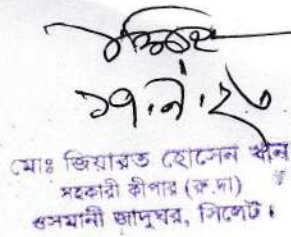 ১৭.৭.২৩
মোঃ জিয়ারত হোসেন খান
সহকারী কীপার (রু.দা)
ওসমানী জাদুঘর, সিলেট।